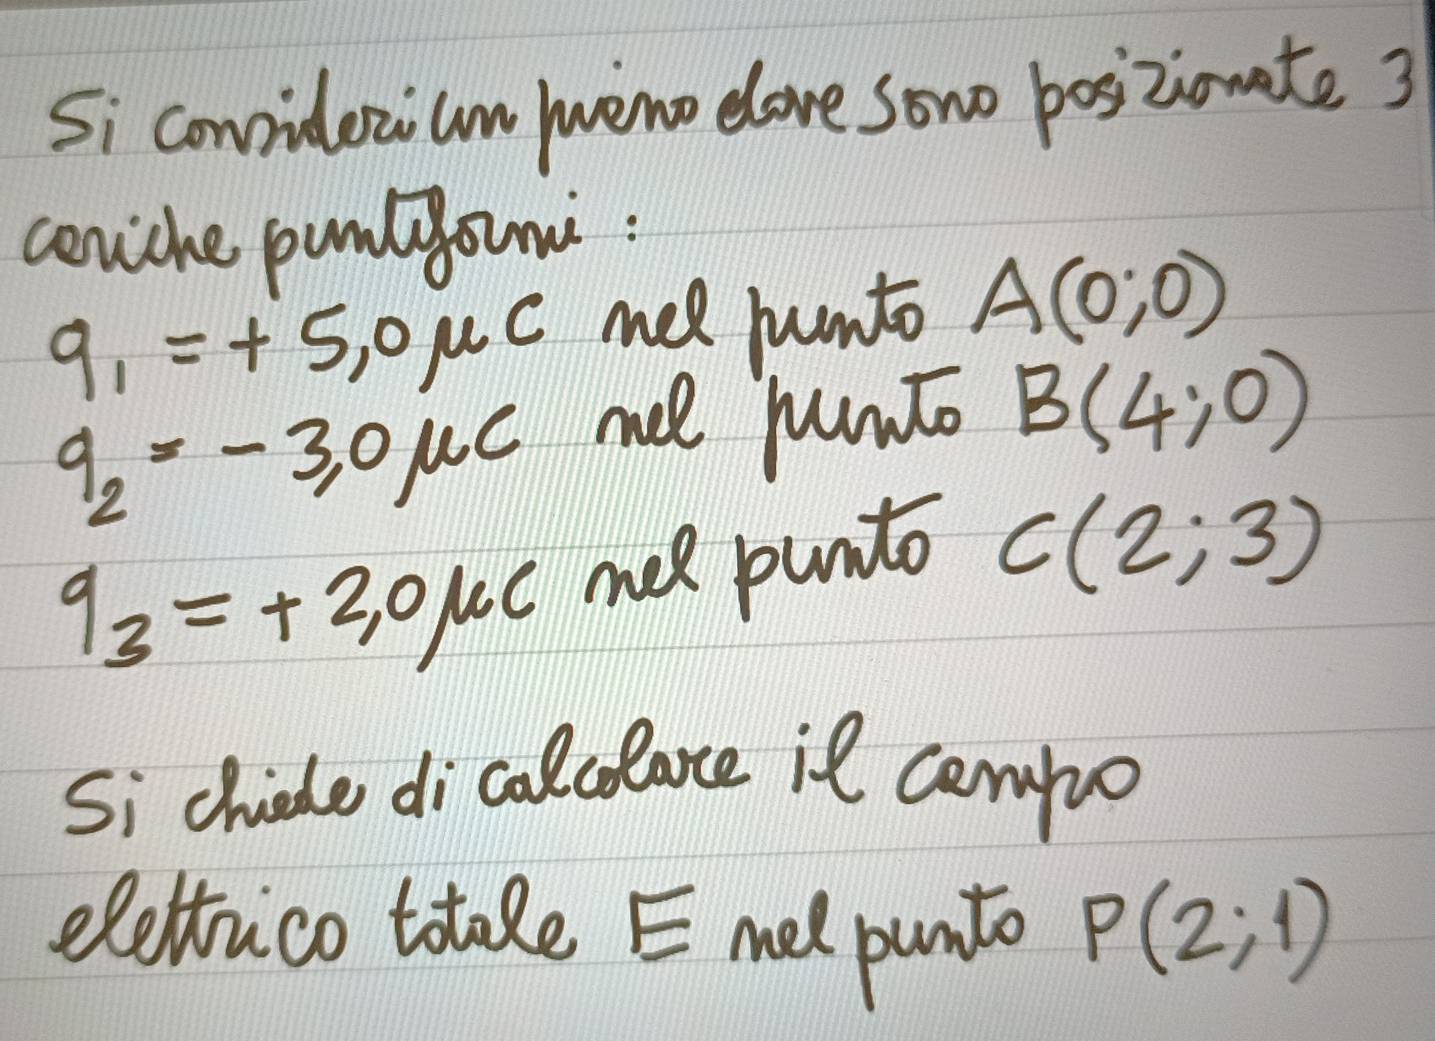 Si consideri un piano dove sono posizionate 3
cariche puntiformi :
q₁ = + 5,0 μC nel punto A(0;0)
q₂ = - 3,0 μC nel punto B(4;0)
q₃ = + 2,0 μC nel punto C(2;3)
Si chiede di calcolare il campo
elettrico totale E nel punto P(2;1)